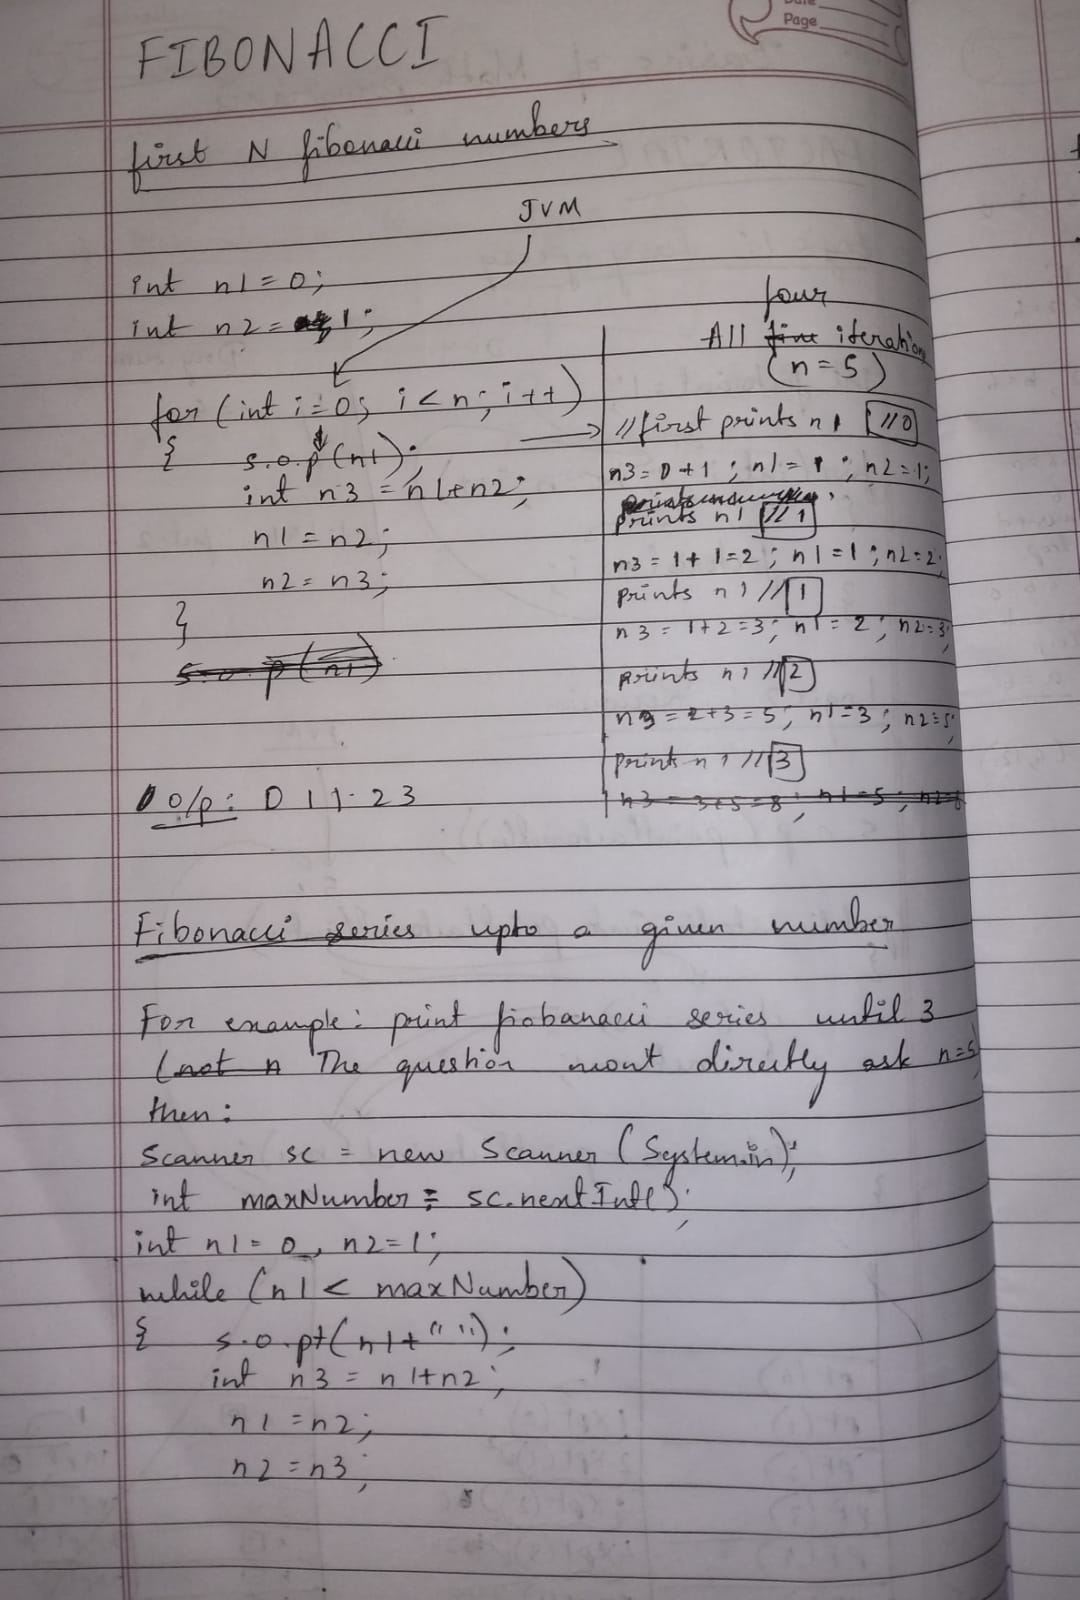 Date
Page
FIBONACCI
first N fibonacci numbers
JVM
int n1 = 0;
int n2 = 1;
for (int i=0; i<n; i++)
{ s.o.p(n1);
int n3 = n1+n2;
n1 = n2;
n2 = n3;
}
s.o.p(n1)
four
All five iterations
(n=5)
//first prints n1 //0
n3=0+1; n1=1; n2=1;
prints n1 //1
n3=1+1=2; n1=1; n2=2;
prints n1 //1
n3=1+2=3; n1=2; n2=3;
prints n1 //2
n3=2+3=5; n1=3; n2=5;
prints n1 //3
n3=3+5=8; n1=5; n2=8
o/p: 0 1 1 2 3
Fibonacci series upto a given number
For example: print fiobanacci series until 3
(not n The question wont directly ask n=5)
then:
Scanner sc = new Scanner (System.in);
int maxNumber = sc.nextInt();
int n1=0, n2=1;
while (n1 < maxNumber)
{ s.o.pt(n1+" ");
int n3 = n1+n2;
n1=n2;
n2=n3;